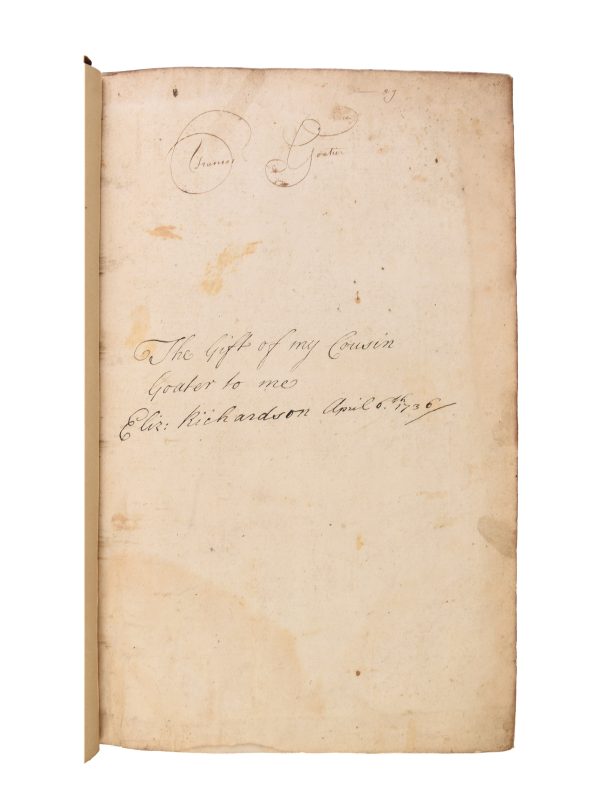 Frances Goater
The Gift of my Cousin
Goater to me
Eliz: Richardson April 6.th 1736